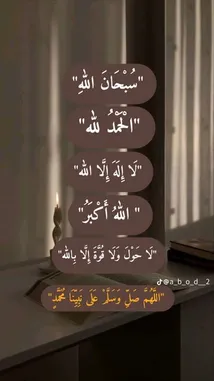 "سُبْحَانَ اللهِ"
"الْحَمْدُ لله"
"لَا إِلَهَ إِلَّا الله"
"اللهُ أَكْبَرُ"
"لَا حَوْلَ وَلَا قُوَّةَ إِلَّا بِالله"
@a_b_o_d_2
"اللَّهُمَّ صَلِّ وَسَلِّمْ عَلَى نَبِيِّنَا مُحَمَّدٍ"